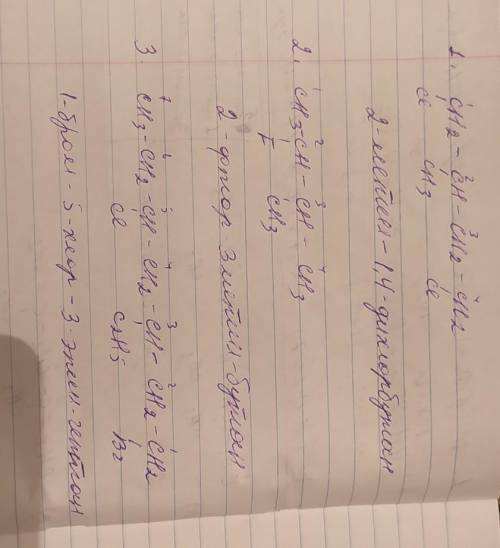 1. ¹CH2 - ²CH - ³CH2 - ⁴CH2
Cl CH3 Cl
2-метил-1,4-дихлорбутан
2. ¹CH3-²CH - ³CH - ⁴CH3
F CH3
2-фтор 3метил-бутан
3 ⁷CH3-⁶CH2-⁵CH-⁴CH2-³CH-²CH2-¹CH2
Cl C2H5 Br
1-бром-5-хлор-3-этил-гептан